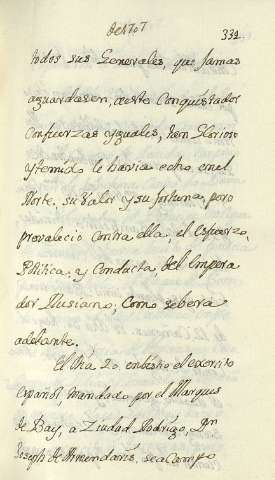 de 1707
332
todos sus Generales, que jamas
aguardasen, a este Conquistador
Confuerzas yguales, tan Glorioso
y temido le havia echo en el
Norte, su valor y su fortuna, pero
prevalecio contra ella, el esfuerzo,
Politica, y Conducta del Empera
dor Rusiano, Como se bera
adelante.
El dia 20. enbistio el exercito
español mandado por el Marques
de Bay, a Ziudad Rodrigo, Dn
Joseph de Armendariz, se a Campo